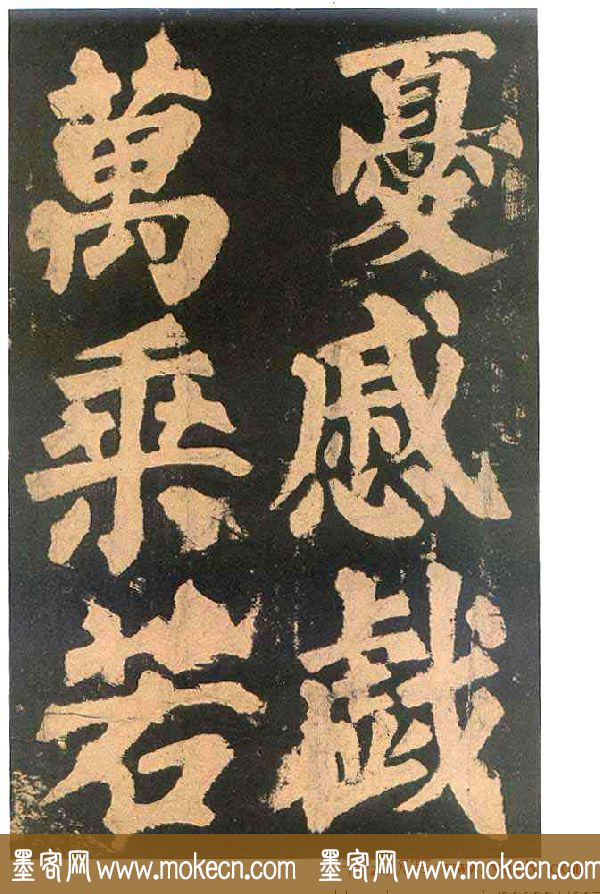 憂慼戲
萬乘若
墨客网 www.mokecn.com 墨客网 www.mokecn.com